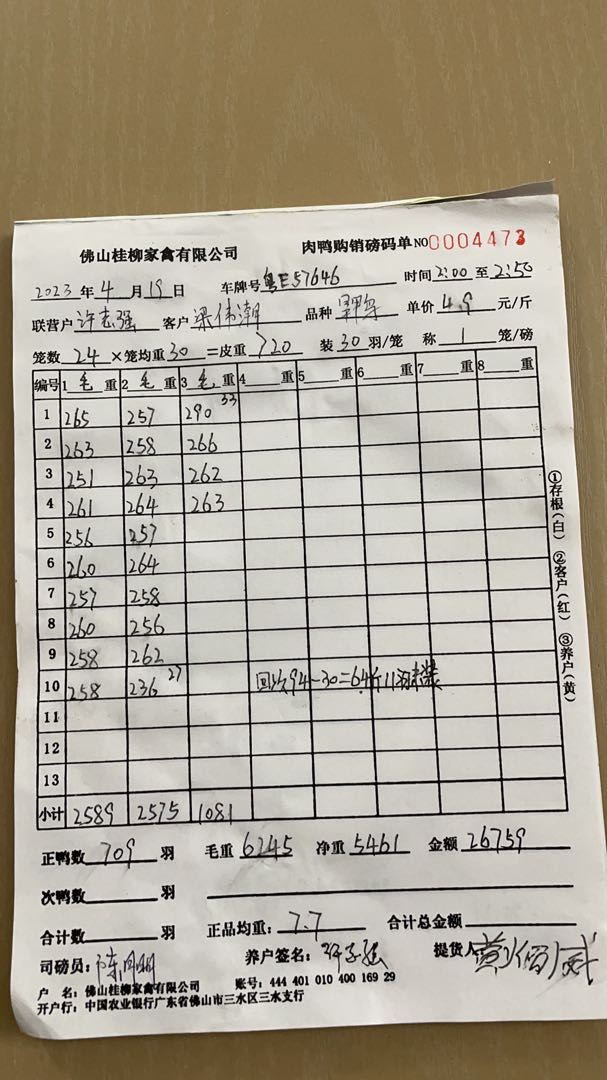 佛山桂柳家禽有限公司 肉鸭购销磅码单 NO0004473
2023年4月19日 车牌号粤E57646 时间2:00至2:50
联营户许志强 客户梁伟潮 品种 单价4.9元/斤
笼数24×笼均重30=皮重720 装30羽/笼 称1笼/磅
编号 1毛重 2毛重 3毛重 4重 5重 6重 7重 8重
1 265 257 290 33
2 263 258 266
3 251 263 262
4 261 264 263
5 256 257
6 260 264
7 257 258
8 260 256
9 258 262
10 258 236 27 94-30=64斤11
11
12
13
小计 2589 2575 1081
正鸭数709羽 毛重6245 净重5461 金额26759
次鸭数羽
合计数羽 正品均重:7.7 合计总金额
司磅员: 养户签名: 提货人
户名:佛山桂柳家禽有限公司 账号:444 401 010 400 169 29
开户行:中国农业银行广东省佛山市三水区三水支行
①存根(白) ②客户(红) ③养户(黄)